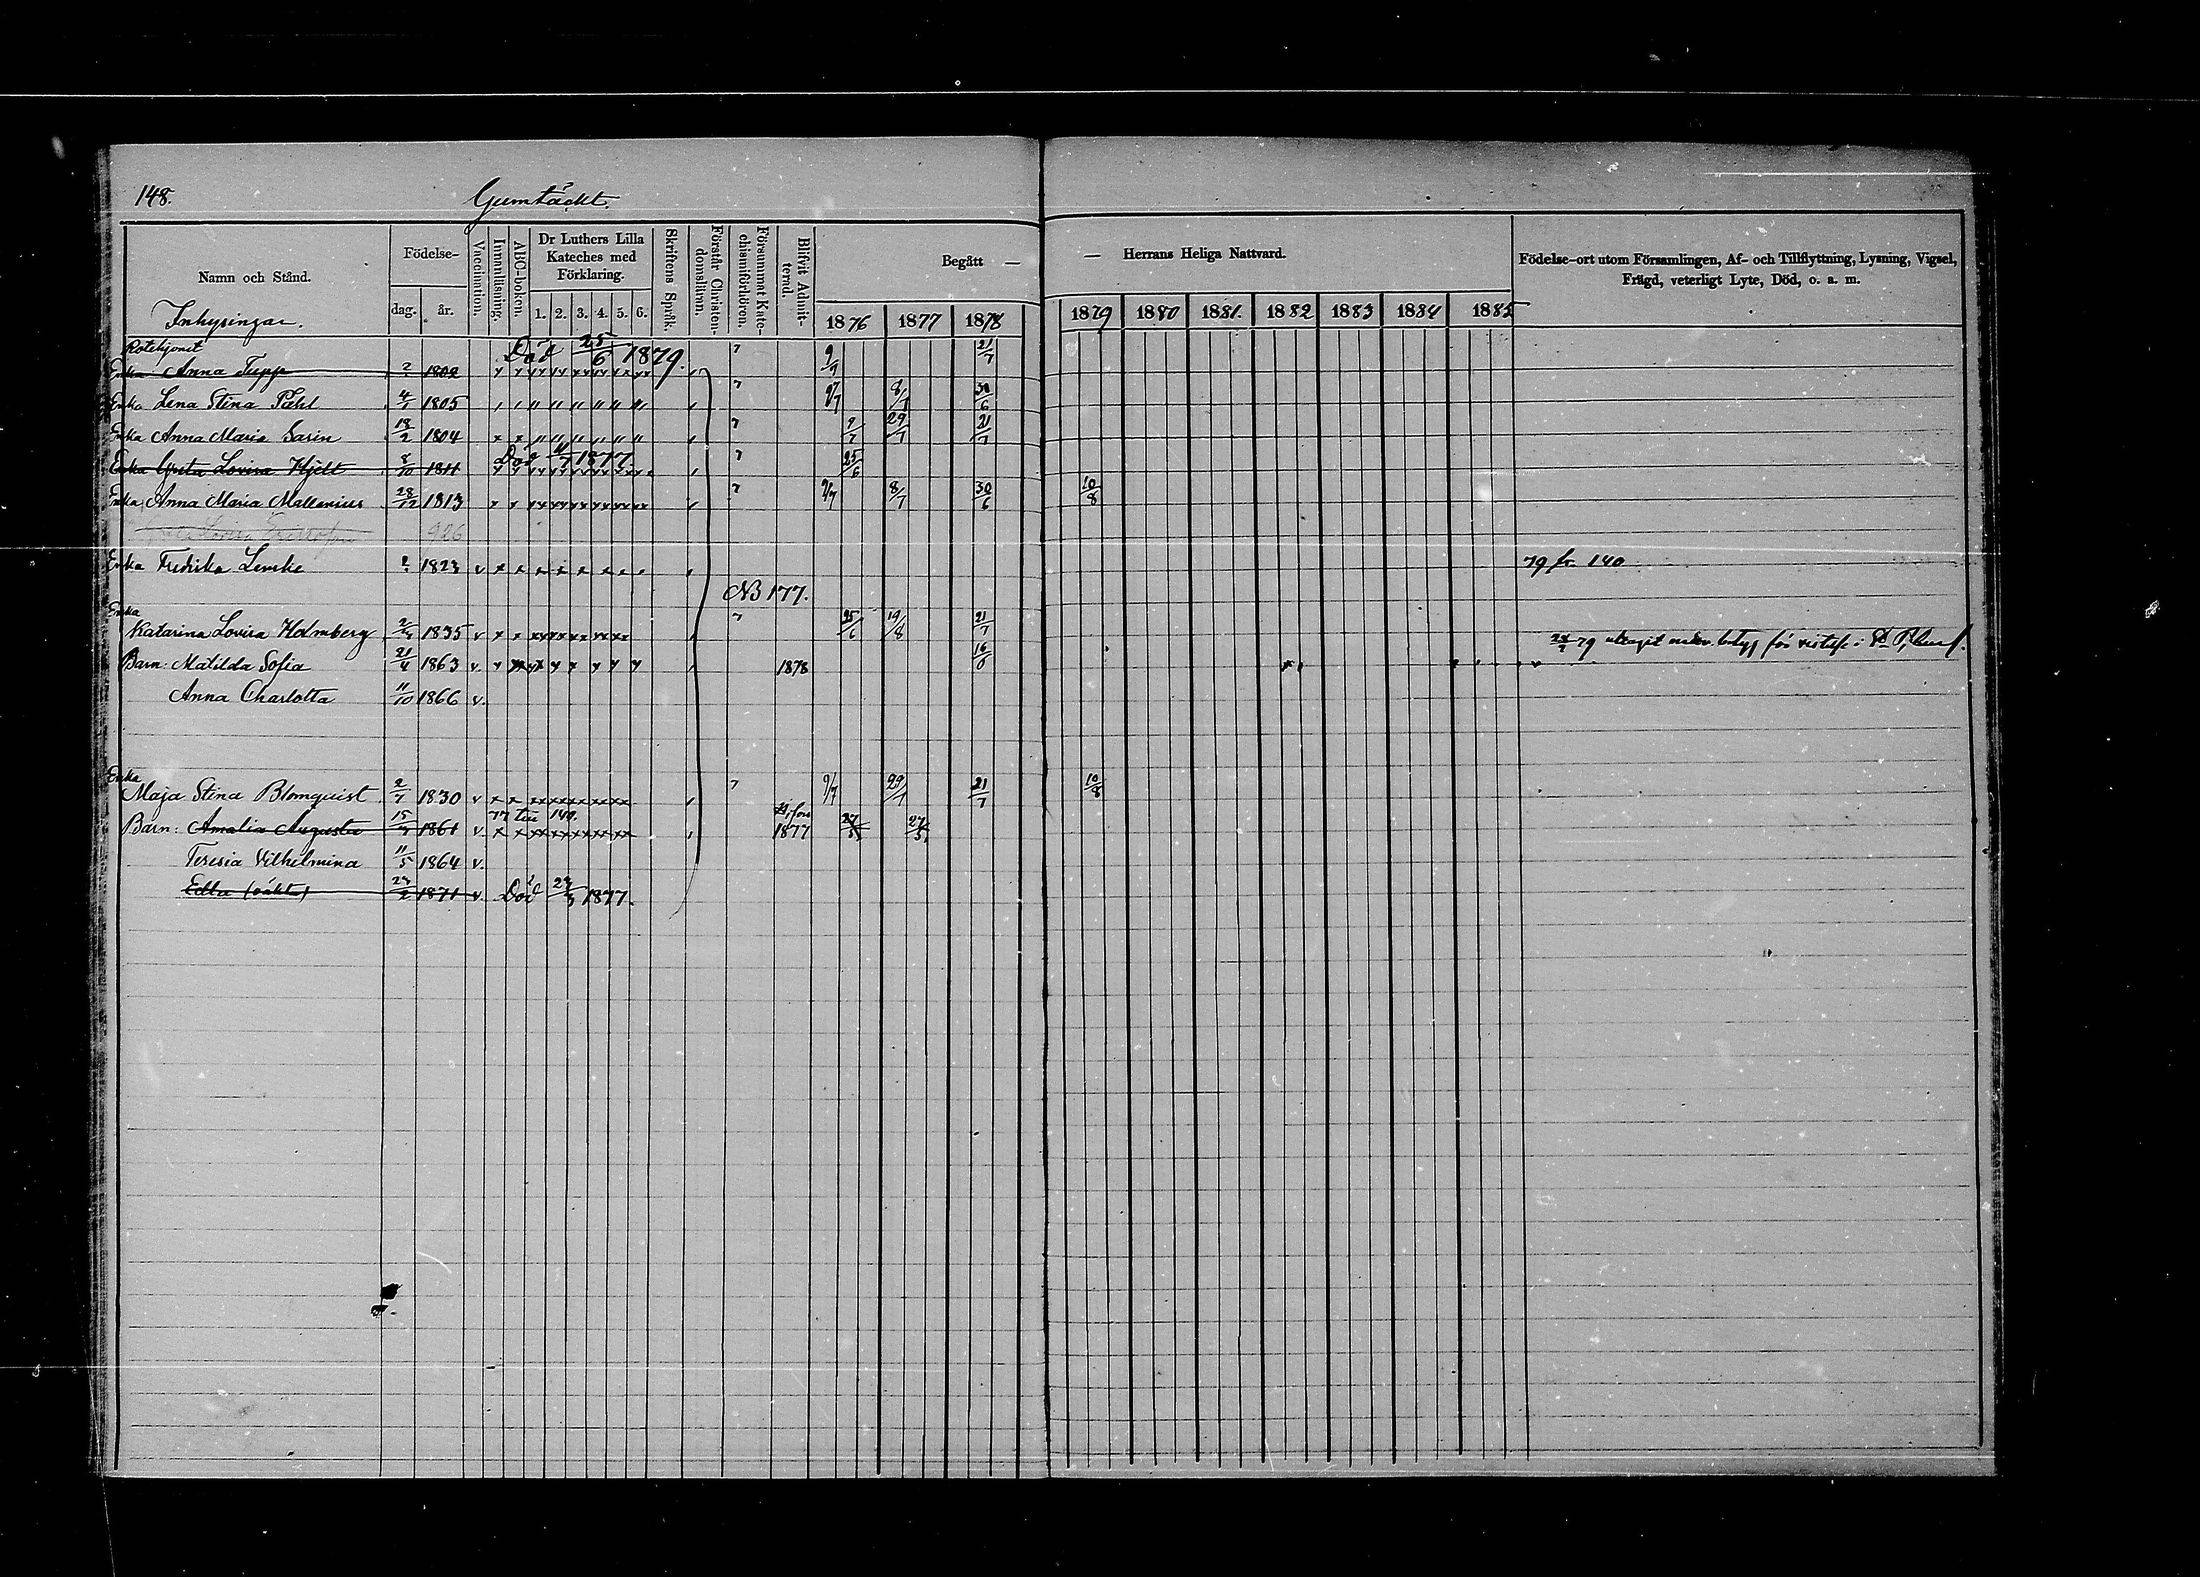 148.
Gumtäckt.
Namn och Stånd.
Födelse-
dag. år.
Vaccination.
Innanläsning.
ABC-boken.
Dr Luthers Lilla Kateches med Förklaring.
1. 2. 3. 4. 5. 6.
Skriftens Språk.
Förstår Christendomsläran.
Försummat Katechismiförhören.
Blifvit Admitterad.
Begått — — Herrans Heliga Nattvard.
1876 1877 1878 1879 1880 1881 1882 1883 1884 1885
Födelse-ort utom Församlingen, Af- och Tillflyttning, Lysning, Vigsel,
Frägd, veterligt Lyte, Död, o. a. m.
Inhysingar.
Rotehjonet Död 25/6 1879.
Enka Anna Tupp 2/2 1802 9/7 21/7
Enka Lena Stina Påhl 4/1 1805 9/7 8/7 30/6
Enka Anna Maria Sarin 18/2 1804 9/7 29/7 21/7
Död 11/7 1877
Enka Greta Lovisa Hjelt 8/10 1811 25/6
Enka Anna Maria Mallenius 28/12 1813 9/7 8/7 30/6 10/8
Lovisa 926
Enka Fredrika Lemke 1823 v 79 fr. 140
NB 177.
Enka
Katarina Lovisa Holmberg 2/4 1835 v 25/6 19/8 21/7 79 betyg för
Barn: Matilda Sofia 21/4 1863 v. 1878 16/6
Anna Charlotta 11/10 1866 v.
Enka
Maja Stina Blomquist 2/7 1830 v 9/7 29/7 21/7 10/8
77 till 140. H:fors
Barn: Amalia Augusta 15/7 1861 v. 1877 27/5 27/5
Teresia Vilhelmina 11/5 1864 v.
Edla (oäkta) 23/2 1871 v. Död 23/3 1877.